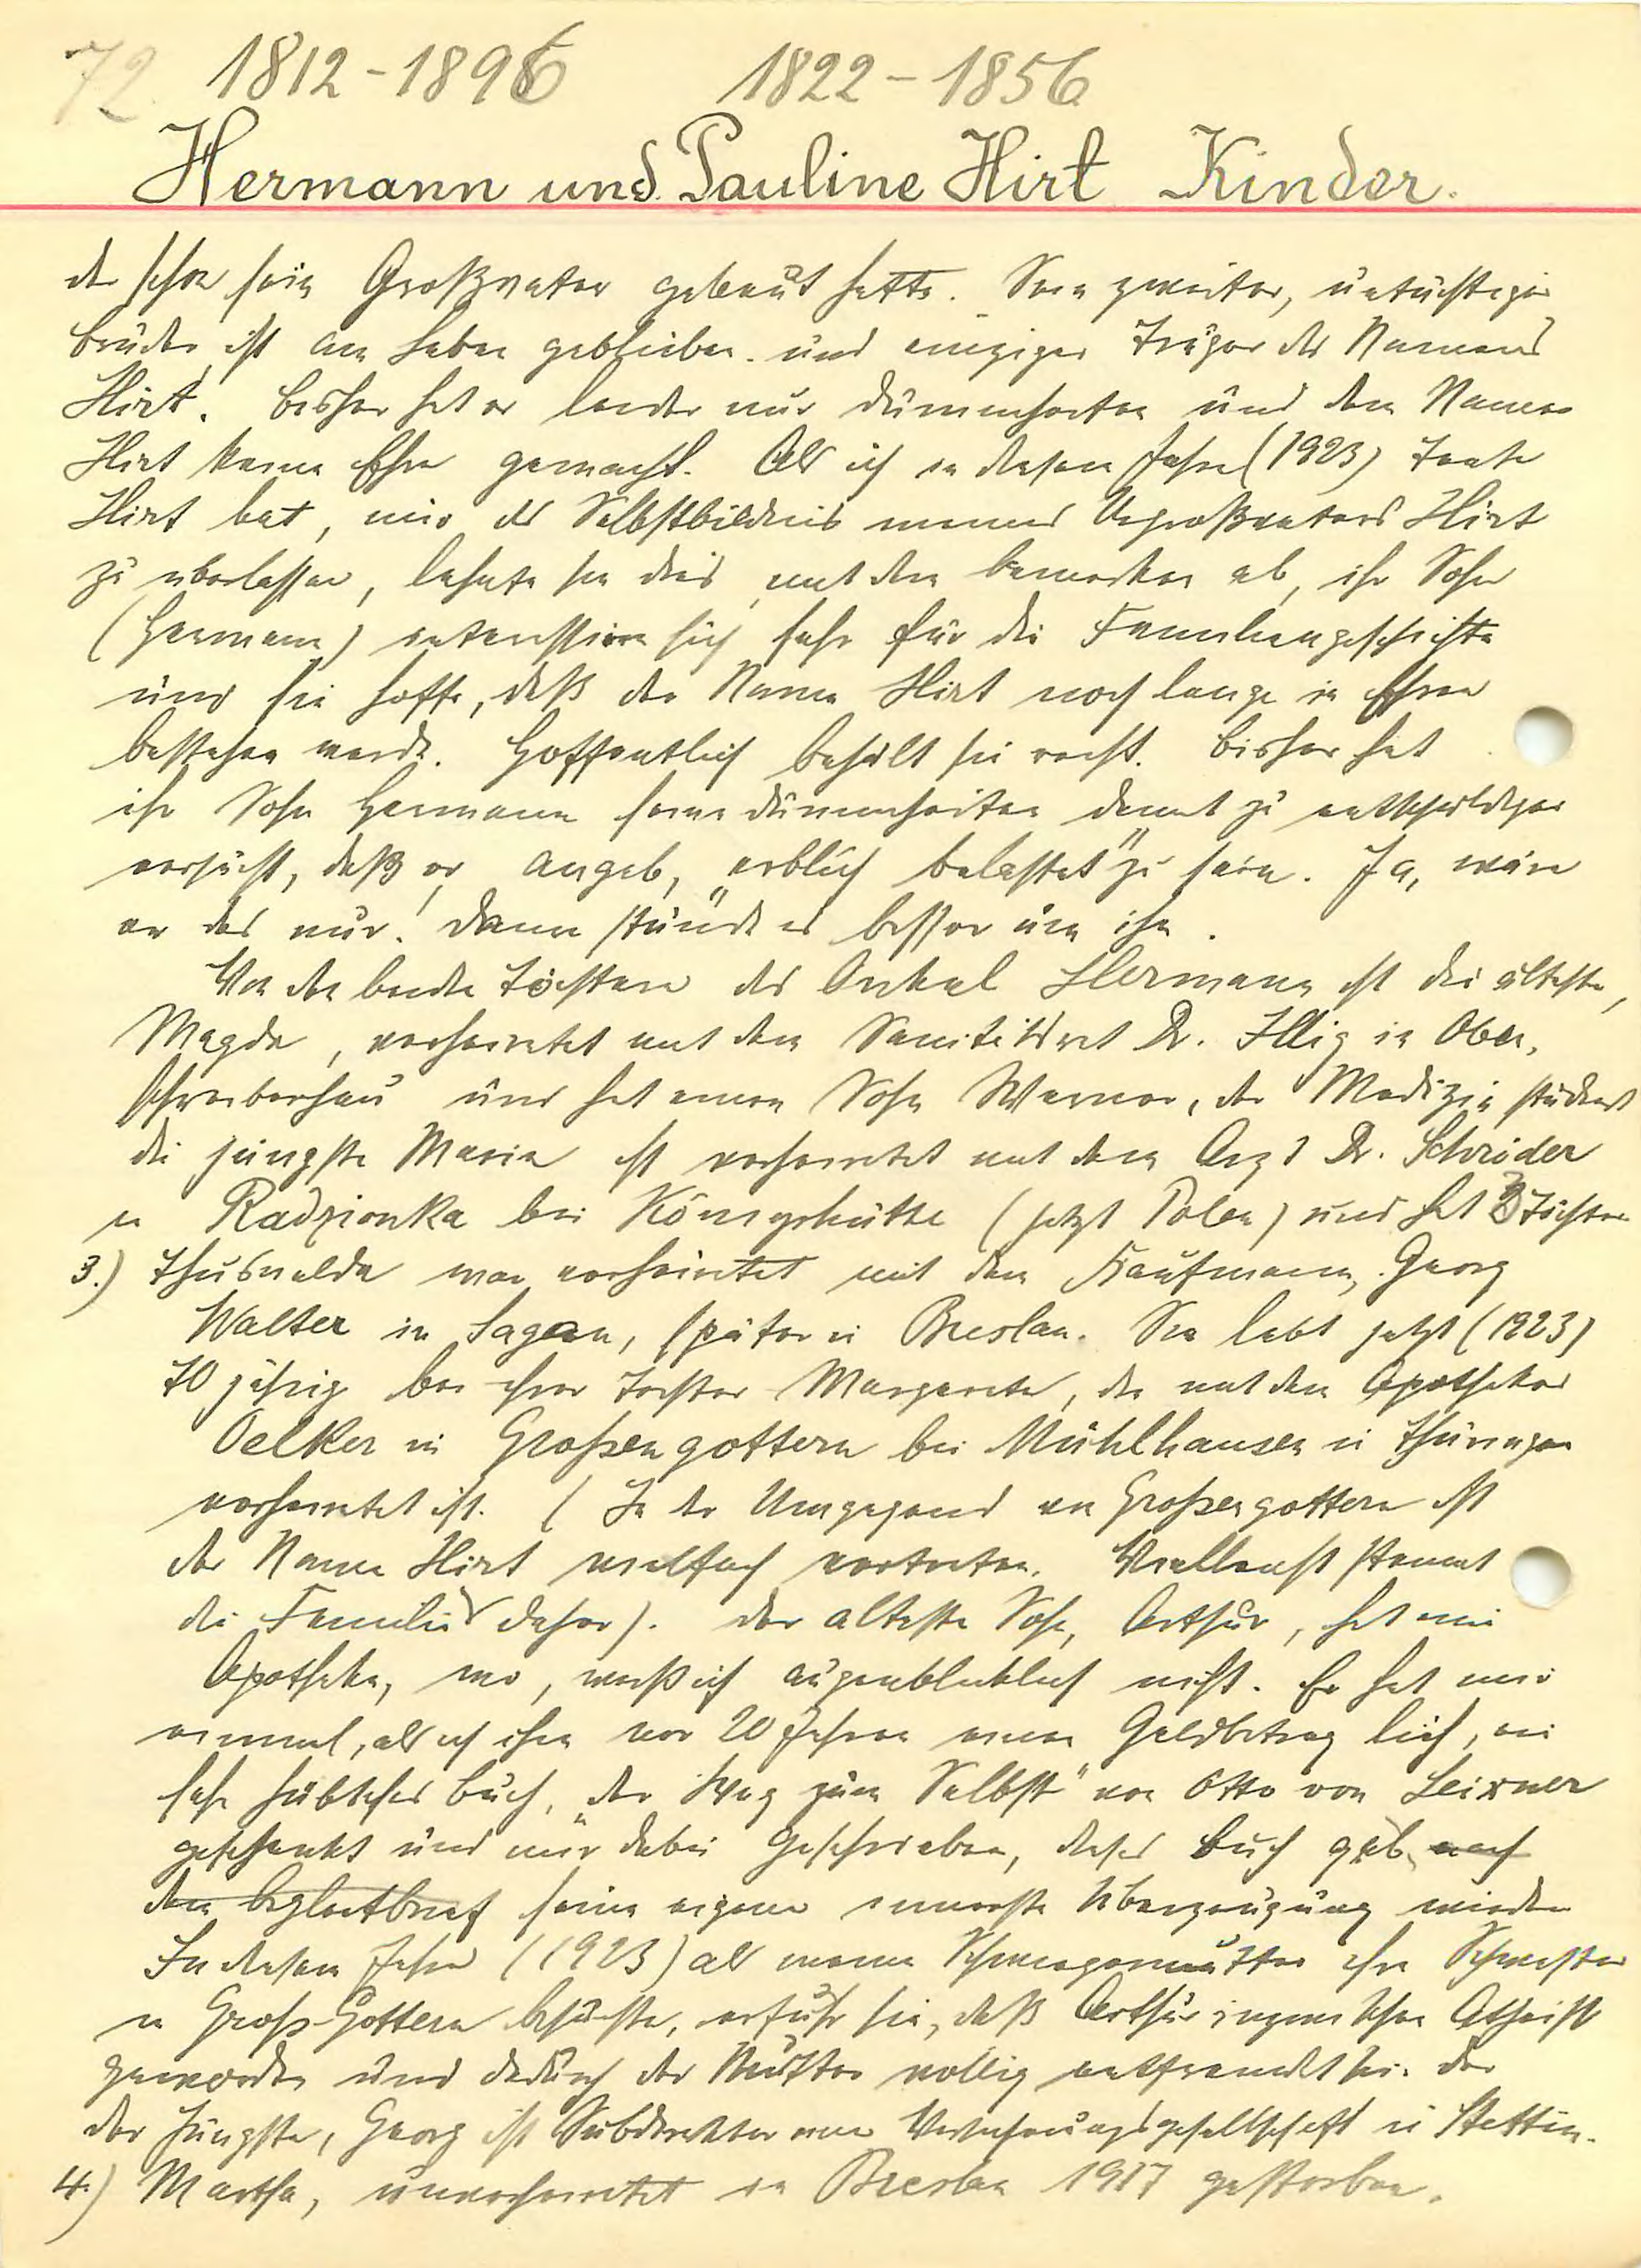 72. 1812-1896 1822-1856
Hermann und Pauline Hirt Kinder.
den schon sein Großvater gebaut hatte. Sein zweiter, untüchtiger
Bruder ist am Leben geblieben und einziger Träger des Namens
Hirt. Bisher hat er leider nur Dummheiten und dem Namen
Hirt keine Ehre gemacht. Als ich in diesem Jahre (1923) Tante
Hirt bat, mir das Selbstbildnis meines Urgroßvaters Hirt
zu überlassen, lehnte sie dies mit dem Bemerken ab, ihr Sohn
(Hermann) interessiere sich sehr für die Familiengeschichte
und sie hoffe, daß der Name Hirt noch lange in Ehren
bestehen werde. Hoffentlich behält sie recht. Bisher hat
ihr Sohn Hermann seine Dummheiten damit zu entschuldigen
versucht, daß er angab, „erblich belastet" zu sein. Ja, wäre
er das nur! Dann stünde es besser um ihn.
Von den beiden Töchtern des Onkel Hermann ist die älteste,
Magda, verheiratet mit dem Sanitätsrat Dr. Illig in Ober-
schreiberhau und hat einen Sohn Werner, der Medizin studiert
die jüngste Maria ist verheiratet mit dem Arzt Dr. Schröder
in Radzionka bei Königshütte (jetzt Polen) und hat 3 Töchter
3.) Thusnelda war verheiratet mit dem Kaufmann Georg
Walter in Sagan, später in Breslau. Sie lebt jetzt (1923)
70 jährig bei ihrer Tochter Margarete, die mit dem Apotheker
Oelker in Großengottern bei Mühlhausen in Thüringen
verheiratet ist. (In der Umgegend von Großengottern ist
der Name Hirt vielfach vertreten. Vielleicht stammt
die Familie daher). Der älteste Sohn, Arthur, hat eine
Apotheke, wo, weiß ich augenblicklich nicht. Er hat mir
einmal, als ich ihm vor 20 Jahren einen Geldbetrag lieh, ein
sehr hübsches Buch, „der Weg zum Selbst" von Otto von Leixner
geschenkt und mir dabei geschrieben, dieses Buch gäbe nach
dem Begleitbrief seine eigene innerste Überzeugung wieder
In diesem Jahre (1923) als meine Schwiegermutter ihre Schwester
in Groß-Gottern besuchte, erfuhr sie, daß Arthur inzwischen Atheist
geworden und dadurch der Mutter völlig entfremdet sei. Der
der Jüngste, Georg ist Subdirektor einer Versicherungsgesellschaft in Stettin.
4.) Martha, unverheiratet in Breslau 1917 gestorben.